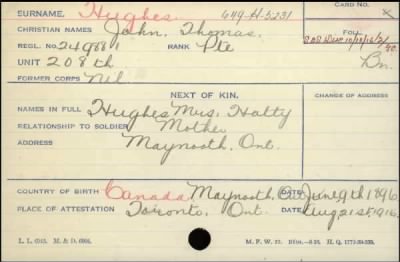 SURNAME. Hughes. 649-H-5231 CARD NO.
CHRISTIAN NAMES John, Thomas.
REGL. NO. RANK Pte FOLL.
UNIT 208th Bn.
FORMER CORPS Nil
NEXT OF KIN. CHANGE OF ADDRESS
NAMES IN FULL Hughes, Mrs. Hatty
RELATIONSHIP TO SOLDIER Mother
ADDRESS Maynooth, Ont.
COUNTRY OF BIRTH Canada Maynooth, Ont DATE June 9th 1896
PLACE OF ATTESTATION Toronto, Ont. DATE Aug 21st 1916.
M. F. W. 22.